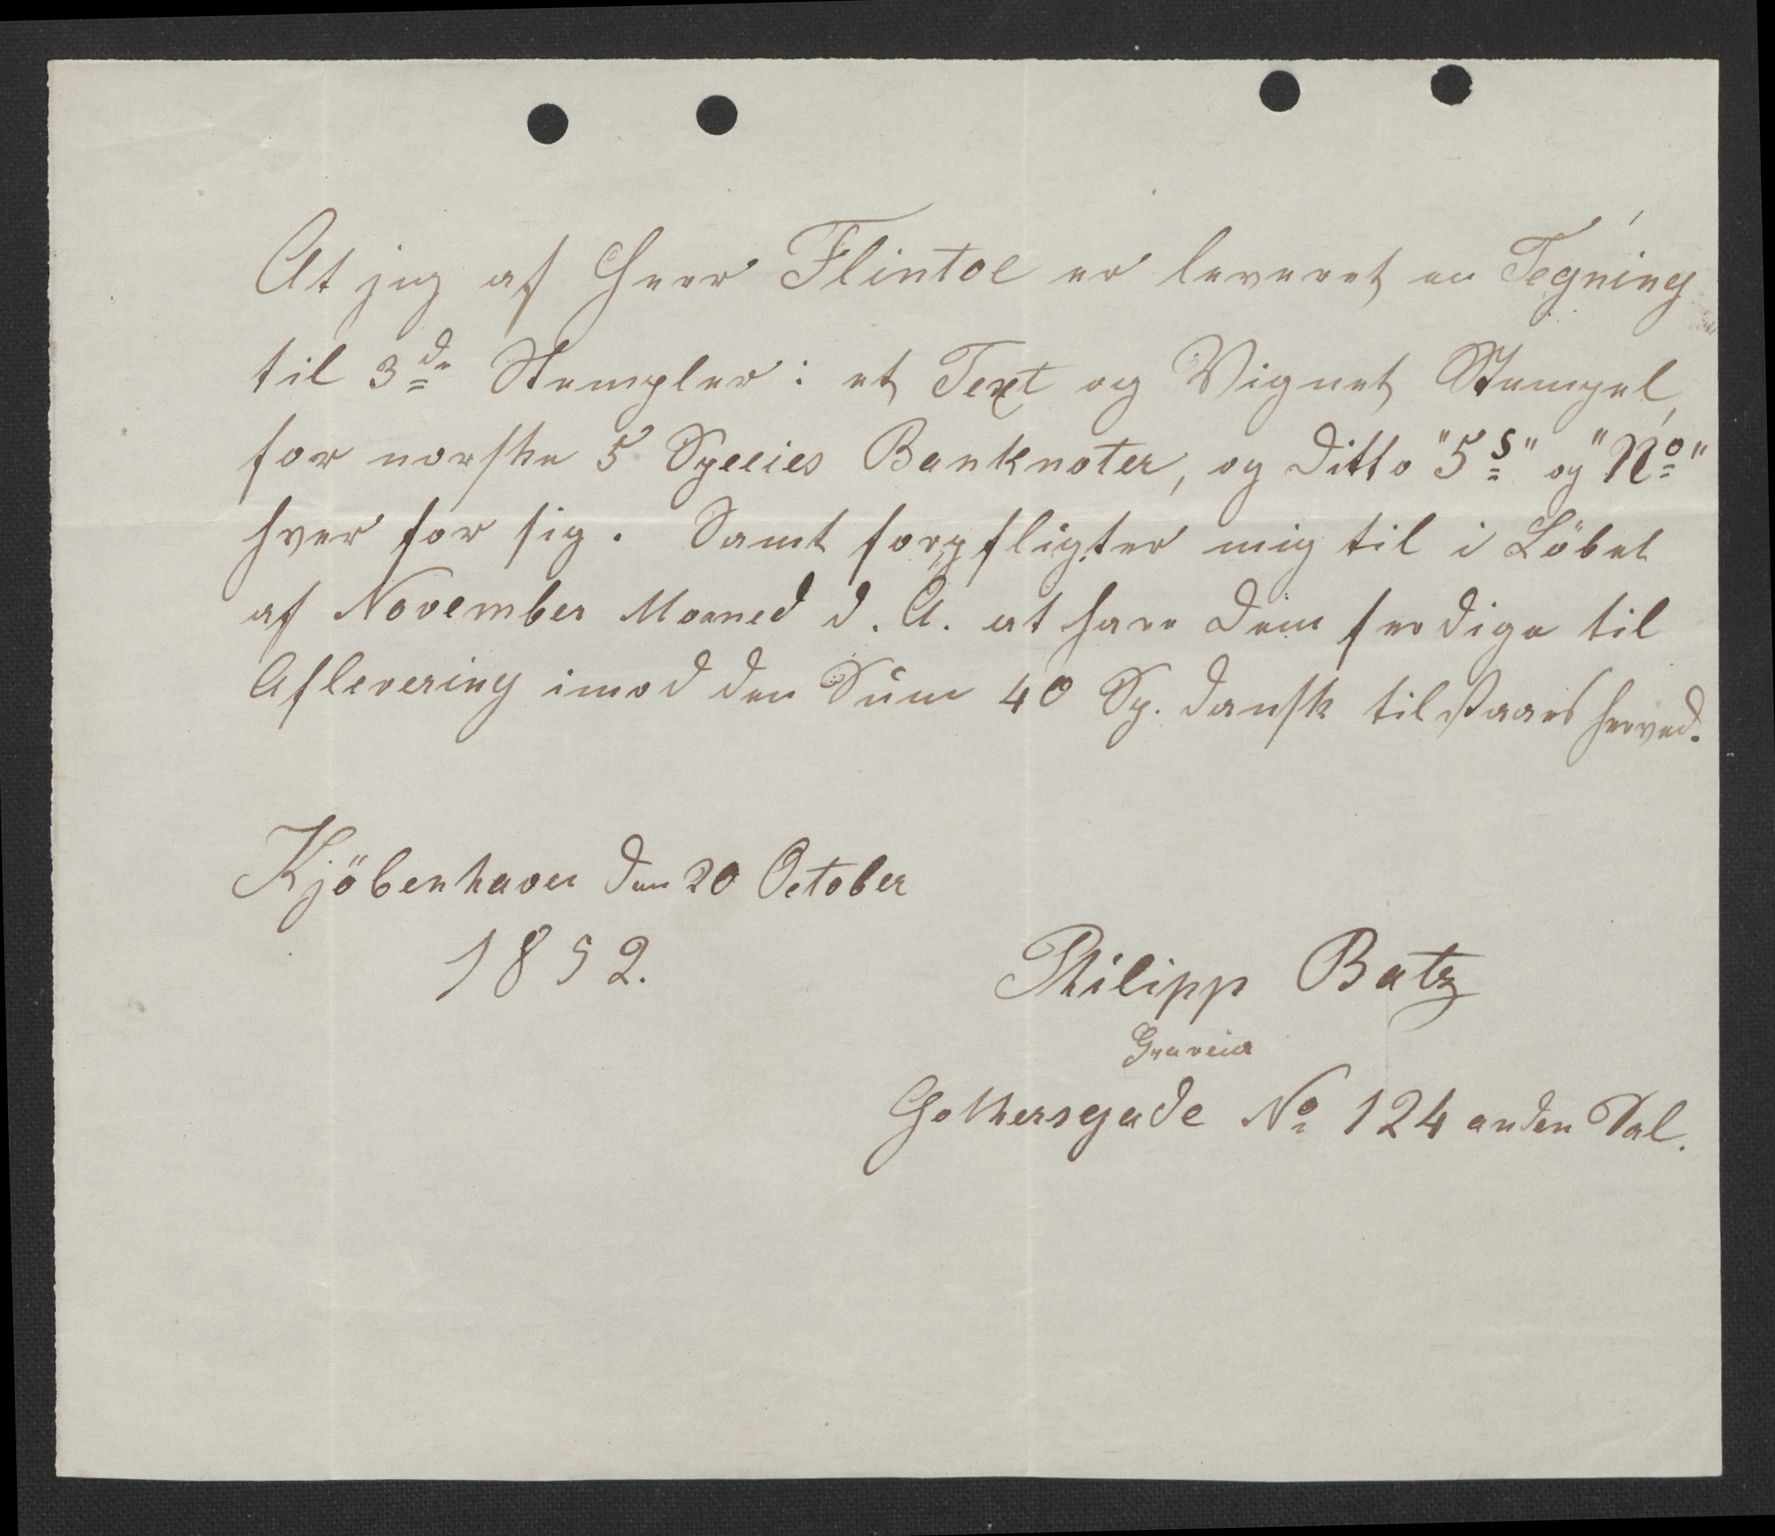 At jeg af Herr Flintoe er leveret en Tegning
til 3de Stempler: et Text og Vignet Stempel,
for norske 5 Species Banknoter, og ditto "5 s" og "No"
hver for sig. Samt forpfligter mig til i Löbet
af November Maaned d. A. at have dem ferdige til
Aflevering imod den Sum 40 Sp. dansk tilstaaes herved.
Kjöbenhaven den 20 October
1852.
Philipp Batz
Graveur
Gothersgade No 124 anden Sal.